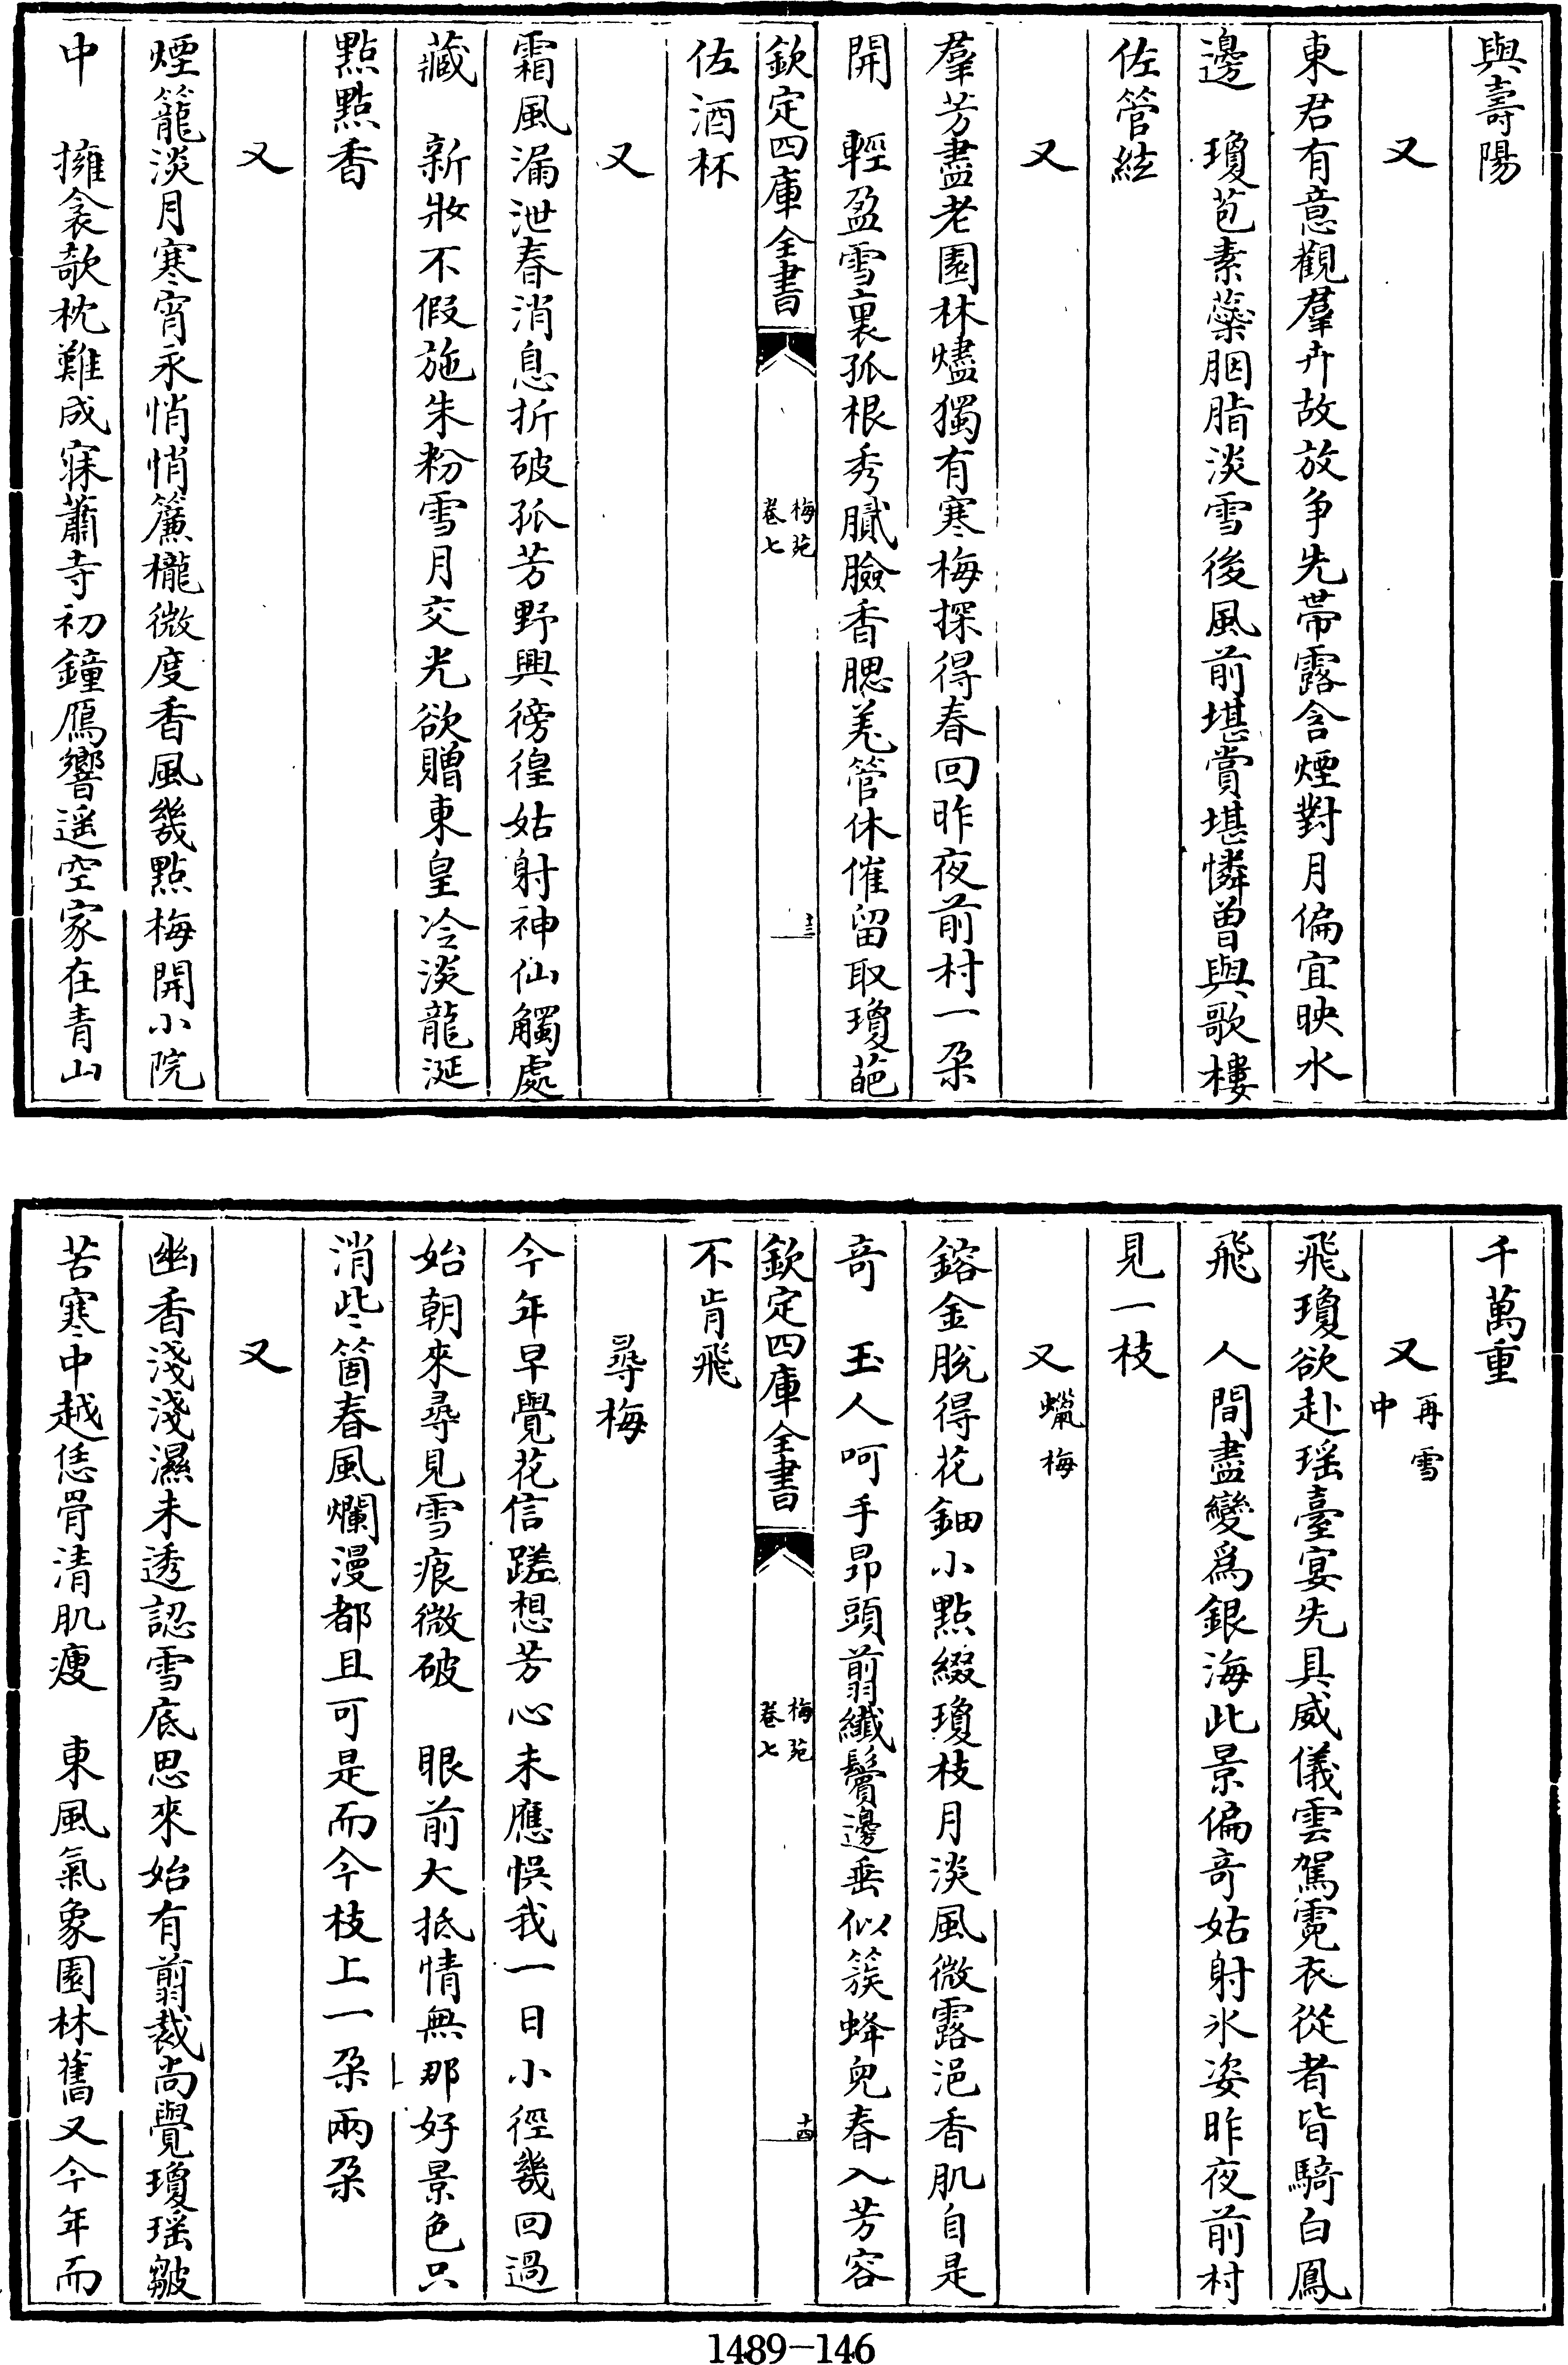 與壽陽
又
東君有意觀羣卉故放争先帶露含煙對月偏宜映水
邊　瓊苞素蘂胭脂淡雪後風前堪賞堪憐曽與歌樓
佐管絃
又
羣芳盡老園林燼獨有寒梅探得春回昨夜前村一朶
開　輕盈雪裏孤根秀膩臉香腮羗管休催留取瓊葩
欽定四庫全書
梅苑
卷七
十三
佐酒杯
又
霜風漏泄春消息折破孤芳野興徬徨姑射神仙觸處
藏　新妝不假施朱粉雪月交光欲贈東皇冷淡龍涎
點點香
又
煙籠淡月寒宵永悄悄簾櫳微度香風幾點梅開小院
中　擁衾欹枕難成寐蕭寺初鐘鴈響遥空家在青山
千萬重
又再雪
中
飛瓊欲赴瑶臺宴先具威儀雲駕霓衣從者皆騎白鳳
飛　人間盡變爲銀海此景偏竒姑射氷姿昨夜前村
見一枝
又蠟梅
鎔金脫得花鈿小點綴瓊枝月淡風微露浥香肌自是
竒　玉人呵手昂頭翦纖鬢邊垂似簇蜂兒春入芳容
欽定四庫全書
梅苑
卷七
十四
不肯飛
尋梅
今年早覺花信蹉想芳心未應悞我一日小徑幾回過
始朝來尋見雪痕微破　眼前大抵情無那好景色只
消些箇春風爛漫都且可是而今枝上一朶兩朶
又
幽香淺淺濕未透認雪底思來始有翦裁尚覺瓊瑶皺
苦寒中越恁骨清肌瘦　東風氣象園林舊又今年而
1489-146